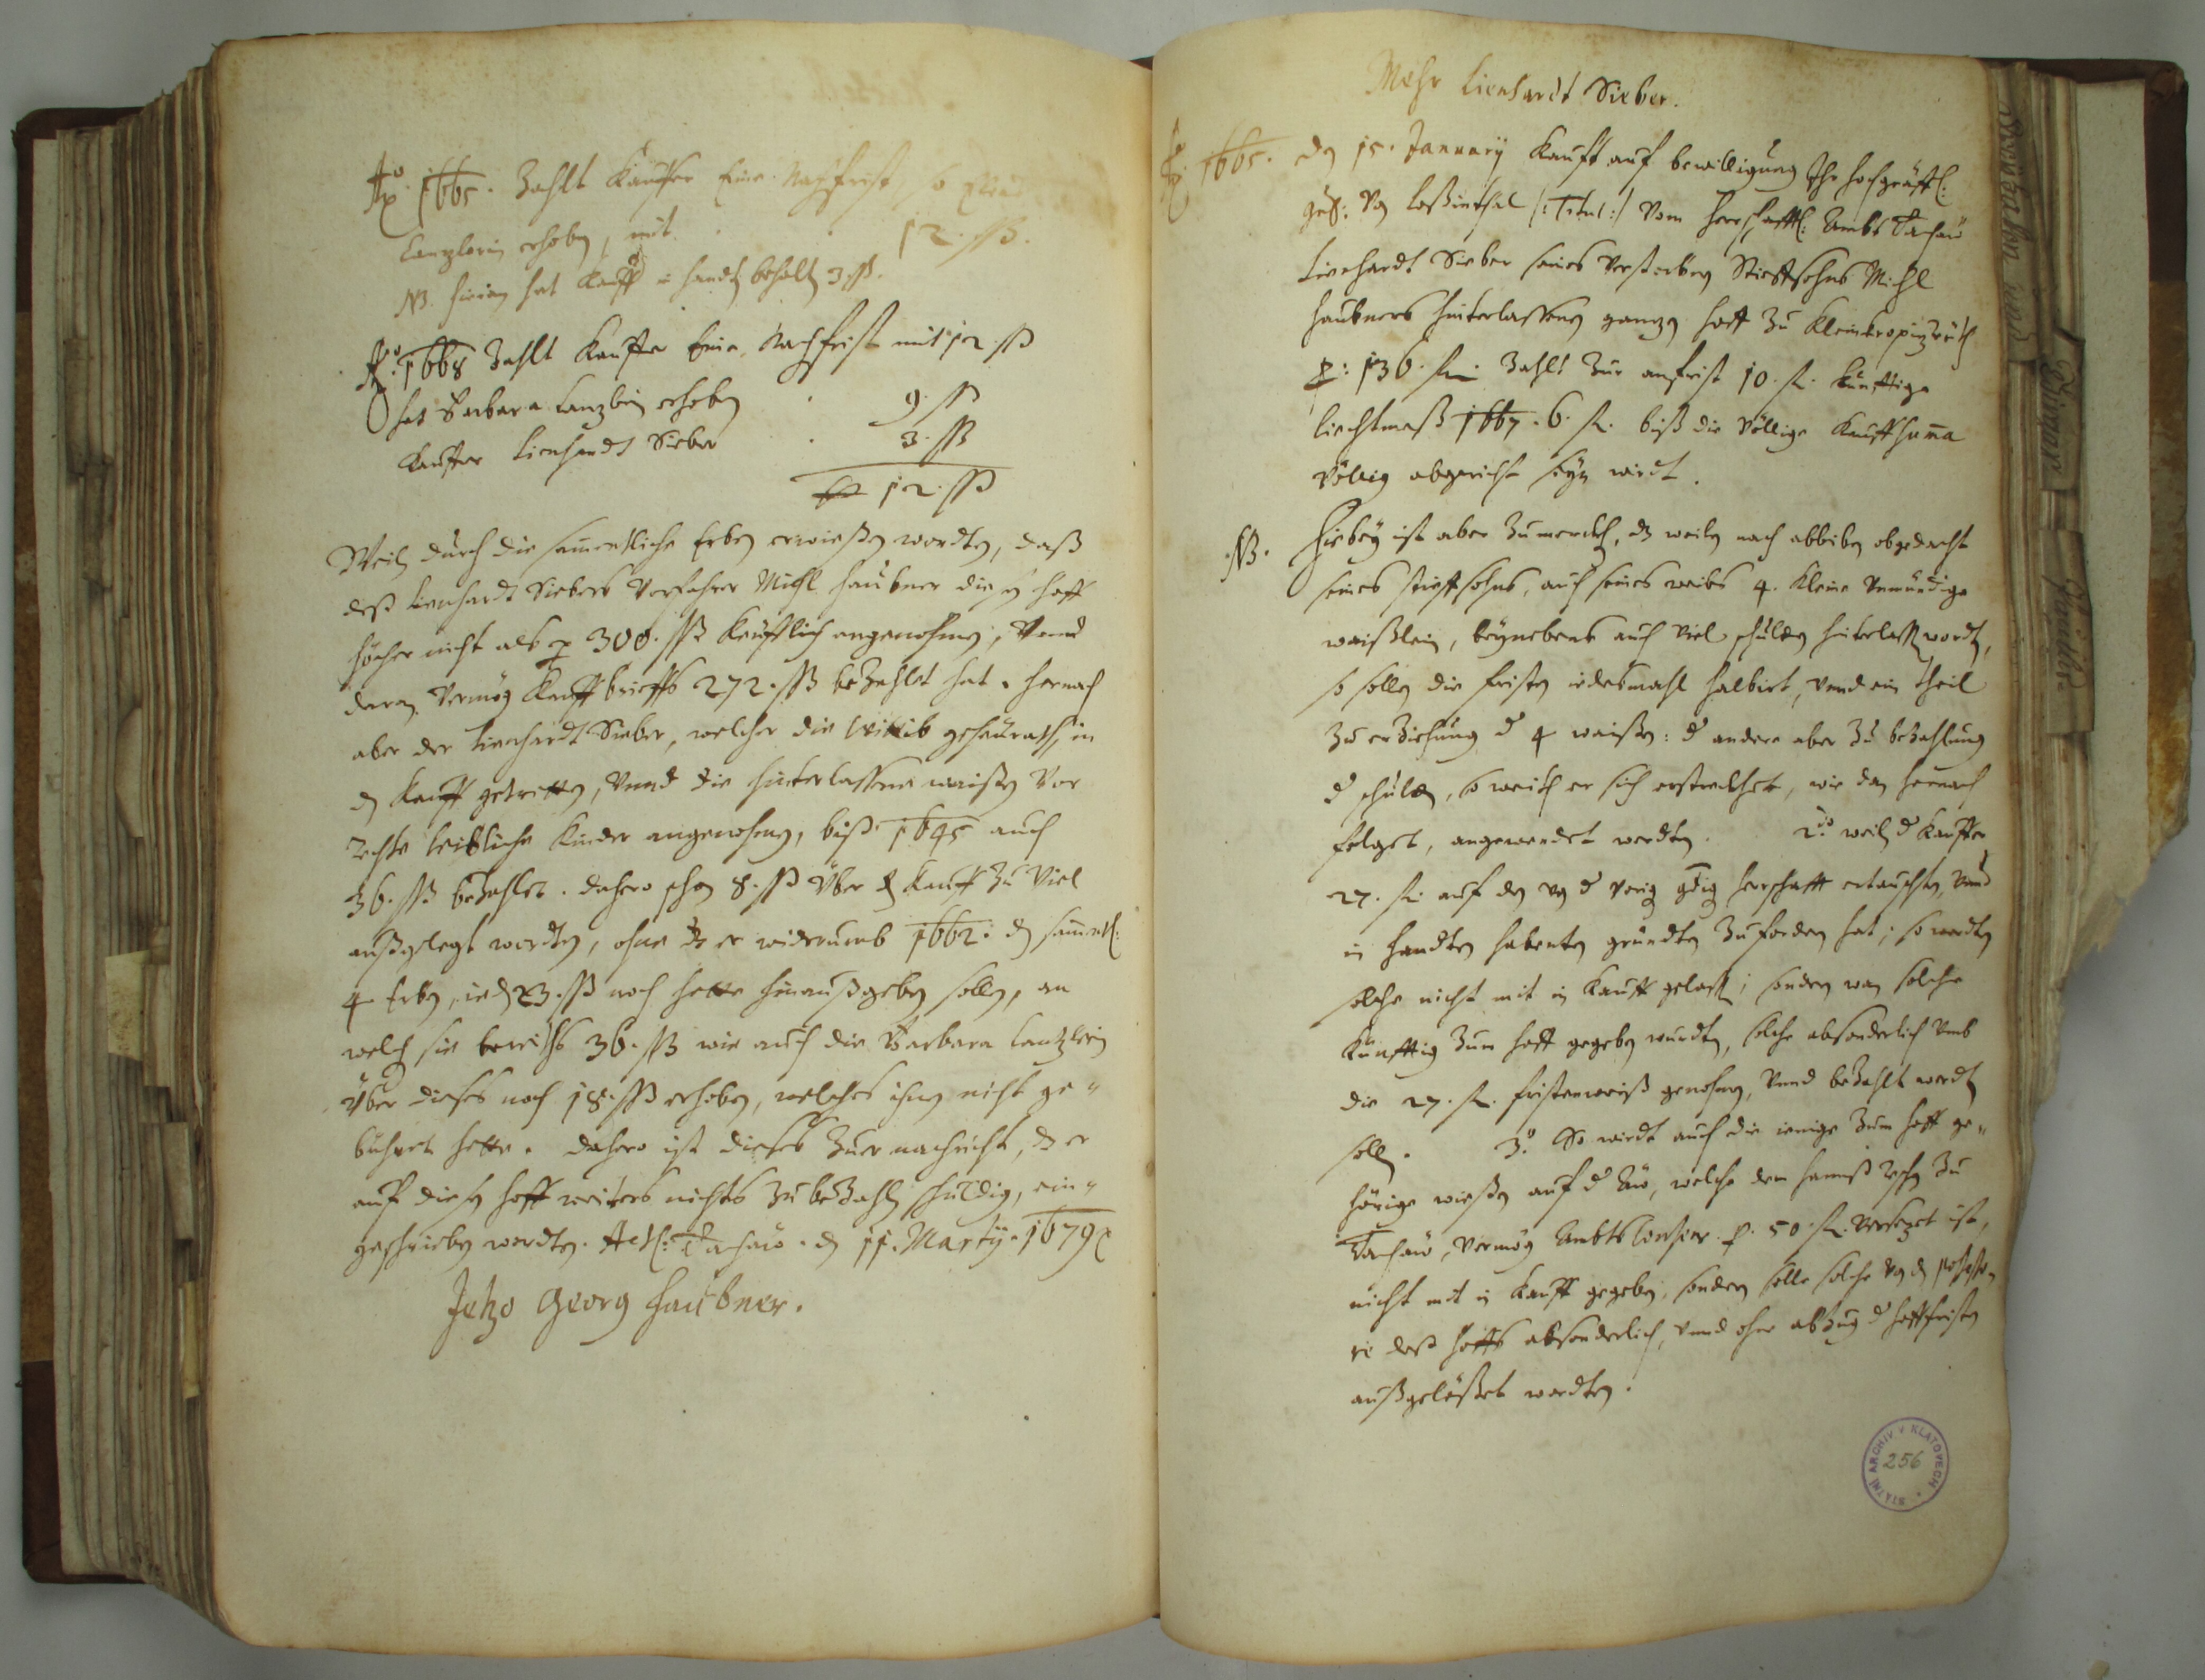 Aō. 1665. Zahlt Kauffer Eine Nachfrist, so
Canzlerin erhoben, mit . . 12. ßß.
NB. hieran hat Kauff. in handen behalten 3. ßß.
Aō. 1668 Zahlt Kauffer Eine Nachfrist mit 12. ßß
hat Barbara Canzlerin erhoben . 9. ßß
Kauffer Lienhardt Sieber . 3. ßß
12. ßß
Weiln durch die sammentliche Erben erwießen worden, daß
deß Lienhardt Siebers Vorfahrer Michl Haubner diesen hoff
höcher nicht als p 300. ßß kaufflich angenohmen, Vnnd
daran Vermög Kauffbrieffs 272. ßß bezahlet hat. hernach
aber der Lienhardt Sieber, welcher die Wittib geheurath, in
den Kauff getretten, Vnnd die hinterlassene waißen Vor
rechte leibliche Kinder angenohmen, biß 1645 auch
36. ßß bezahlet. dahero schon 8. ßß Über den Kauff Zu Viel
außgelegt worden, ohne dz er widerumb 1662. den sammentl:
4 Erben, jeden 23. ßß noch hette hinaußgeben sollen, an
welchen sie bereiths 36. ßß wie auch die Barbara Canzlerin
Über dieses noch 18. ßß erhoben, welches ihnen nicht ge-
bühret hette. dahero ist dieses Zur nachricht, dz er
auf diesen hoff weiters nichts Zu bezahlen schuldig, ein-
geschrieben worden. Act: Tachaw. den 11. Marty. 1679
Jetzo Georg Haubner.
Mehr Lienhardt Sieber.
Aō. 1665. den 15. January Kaufft auf bewilligung Ihr hochgräffl:
Gnd: Von Loßinthal /: Titul :/ Vom herrschafftl: Ambt Tachau
Lienhardt Sieber seines Verstorbenen Stieffsohns Michl
Haubners hinterlassenen ganzen hoff Zu Kleinkropizreith
p: 136. fl. Zahlt Zur anfrist 10. fl. künfftige
Liechtmeß 1667. 6. fl. biß die Völlige Kauffsumma
Völlig abgericht seyn wirdt.
NB. Hiebey ist aber Zu merckhen, dz weilen nach ableiben obgedacht
seines stieffsohns, auch seines weibs 4. kleine Vnmündige
waißlein, beynebens auch viel schulden hinterlassen worden,
so sollen die fristen iedesmahl halbirt, Vnnd ein theil
Zu erziehung d 4 waißen: d andere aber Zu bezahlung
d schulden, so weith er sich erstreckhet, wie dan hernach
folget, angewendet werden. 2do. weiln d Kauffer
27. fl. auf den von d Vorigen gdigen herrschafft ertauschten, Vnnd
in handten habenten gründten Zu fordern hat; so werden
solche nicht mit in Kauff gelassen; sondern wan solche
künfftig Zum hoff gegeben wurdten, solche absonderlich Vmb
die 27. fl. fristenweiß genohmen, Vnnd bezahlt werden
sollen. 3o. So wirdt auch die ienige Zum hoff ge-
hörige wießen auf d Aw, welche dem Hannß Zu
Tachaw, Vermög Ambts p. 50. fl. Versezet ist,
nicht mit in Kauff gegeben, sondern solle solche von den possesso-
ri deß hoffs absonderlich, Vnnd ohne abzug d hoffristen
außgelößet werdten.
STÁTNÍ ARCHIV V KLATOVECH
256